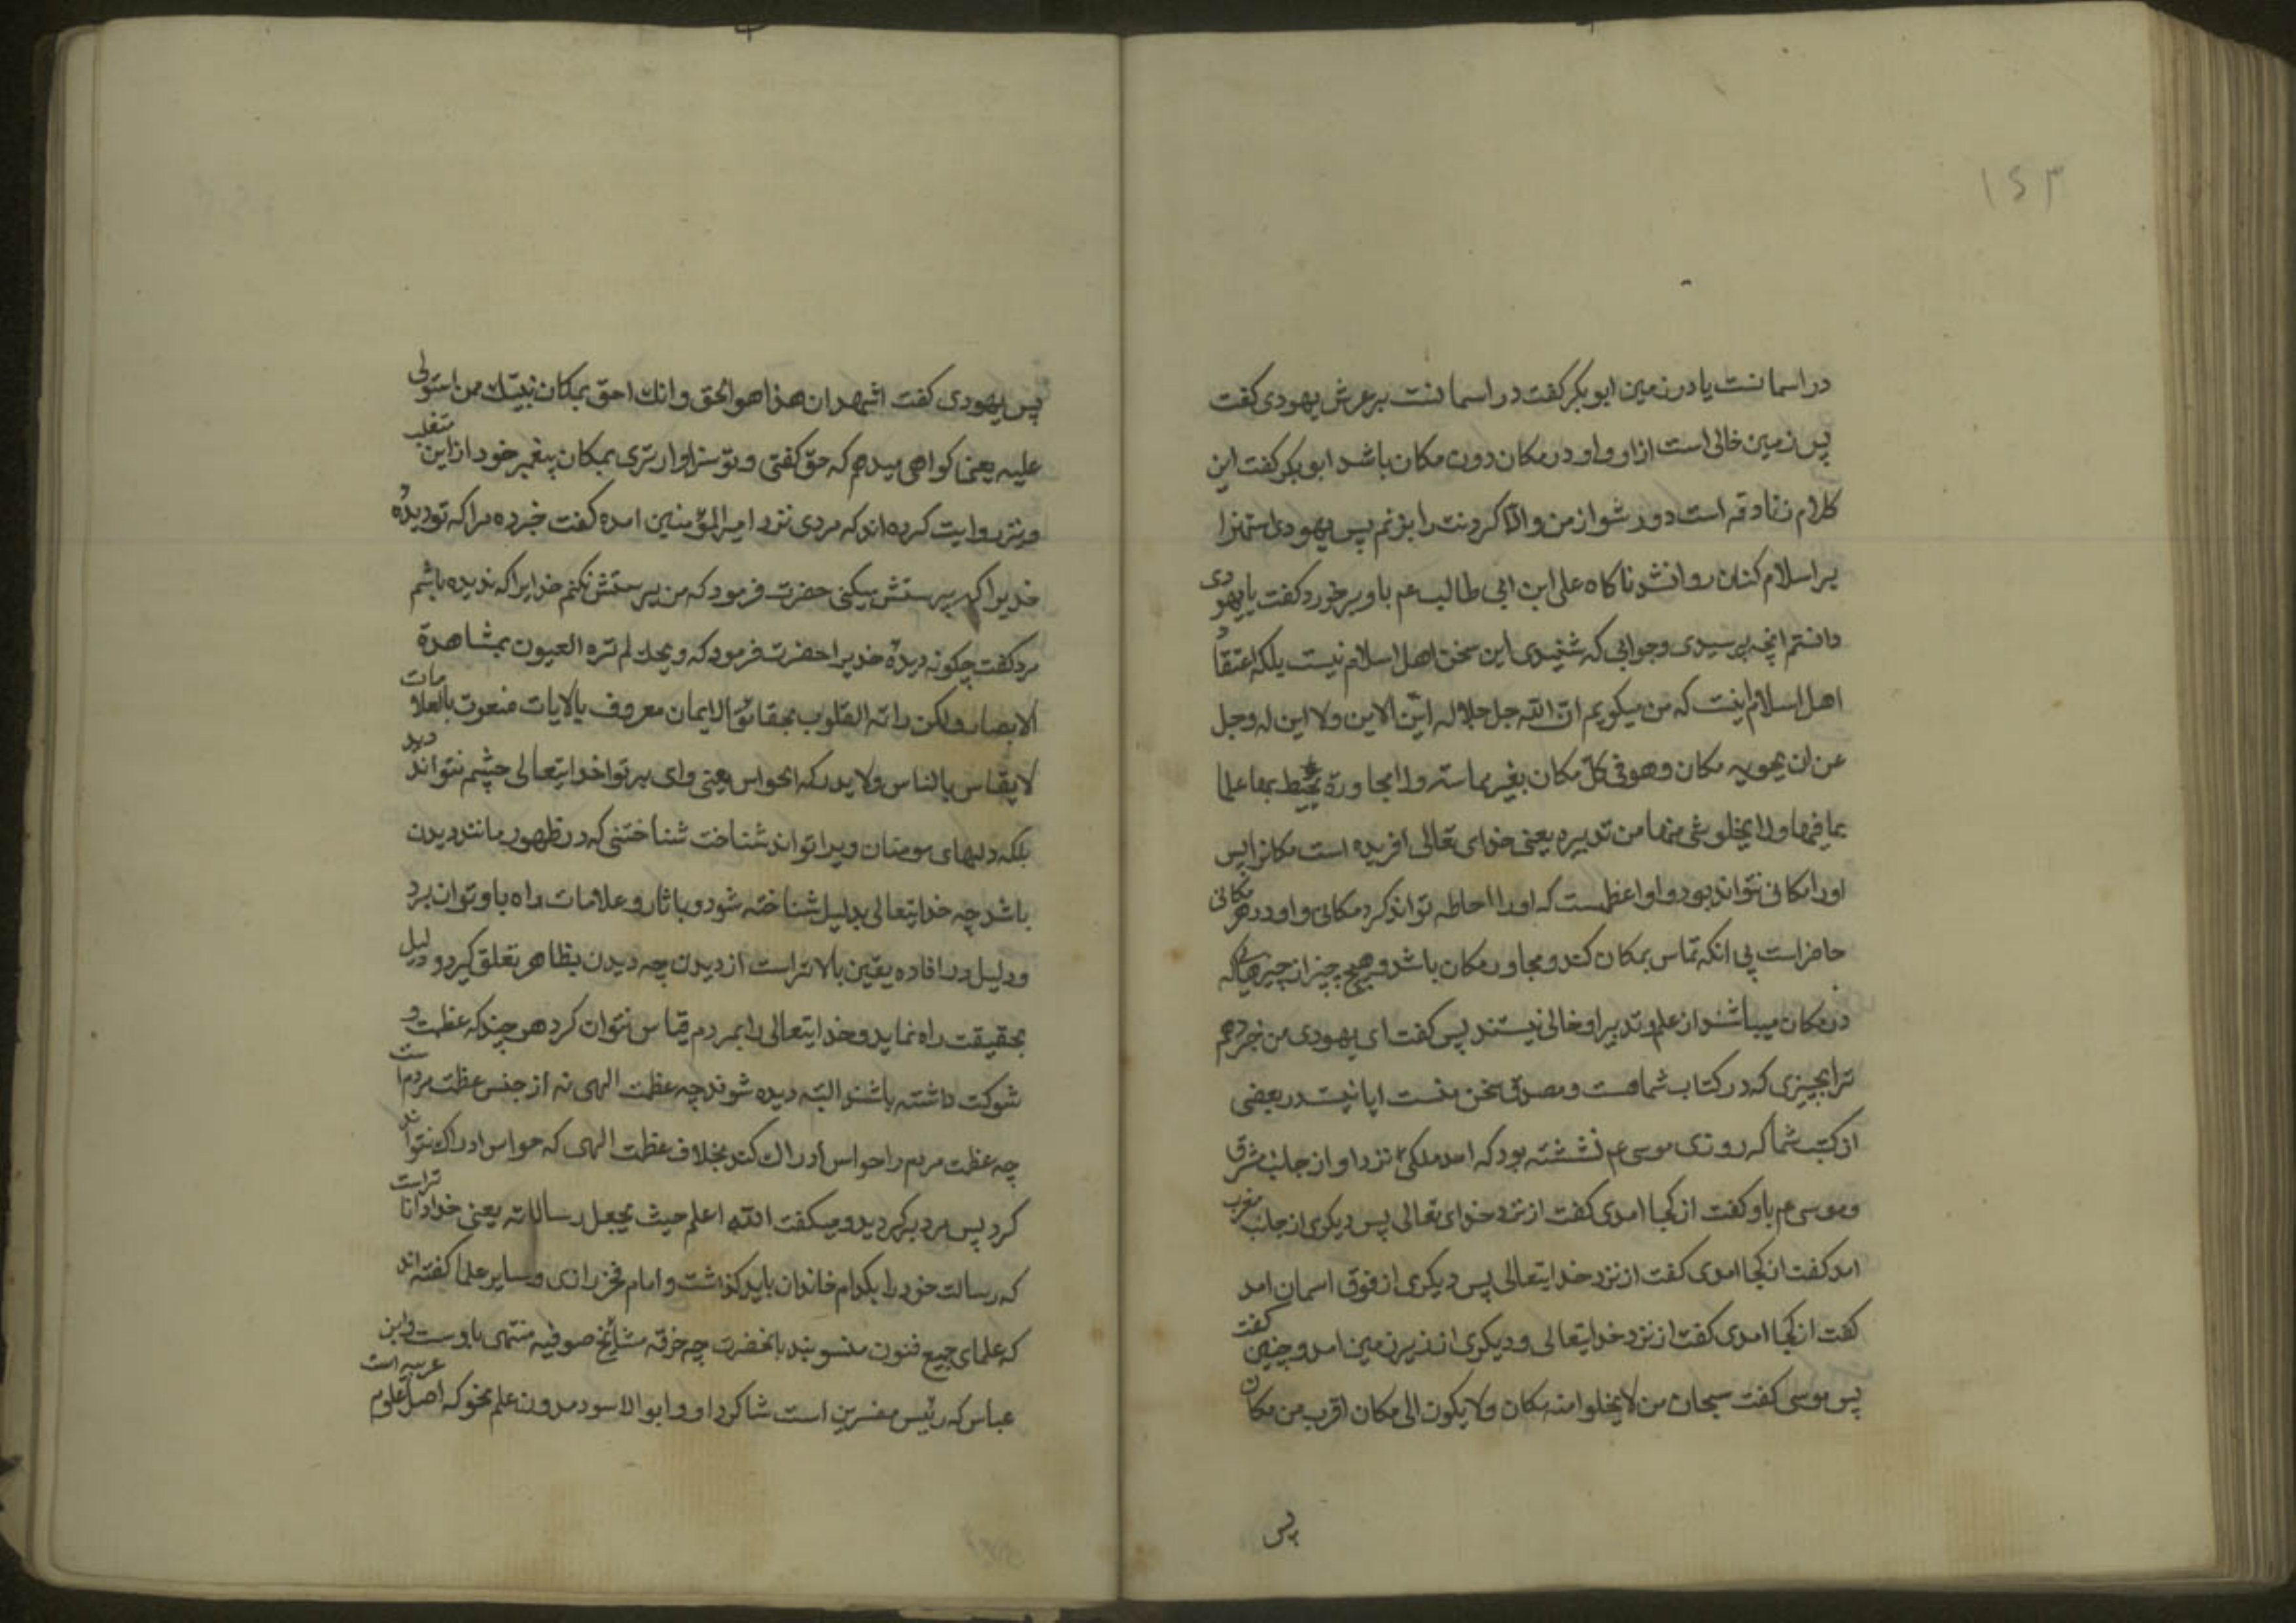 ۱۵۳
در اسمانست یا در زمین ابوبکر کفت در اسمانست بر عرش یهودی کفت
پس زمین خالی است از او و او در مکان دون مکان باشد ابوبکر کفت این
کلام زنادقه است دور شو از من والا کردنت را بزنم پس یهودی استهزا
بر اسلام کنان روانشد ناکاه علی ابن ابی طالب عم باو برخورد کفت یا یهودی
دانستم انچه پرسیدی و جوابی که شنیدی این سخن اهل اسلام نیست بلکه اعتقاد
اهل اسلام اینست که من میکویم ان الله جل جلاله این الاین ولا این له وجل
عن ان یحویه مکان وهو فی کل مکان بغیر مماسته ولا مجاورة یحیط بها علما
بما فیها ولا یخلو شی منها من تدبیره یعنی خدای تعالی افریده است مکانرا پس
اورا مکانی نتواند بود و او اعظمست که اورا احاطه تواند کرد مکانی و او در هر مکانی
حاضر است بی انکه تماس بمکان کند و مجاور مکان باشد و هیچ چیز از چیزهائی که
در مکان میباشند از علم و تدبیر او خالی نیستند پس کفت ای یهودی من خبر دهم
ترا بچیزی که در کتاب شماست و مصدق سخن منست ایا نیست در بعضی
از کتب شما که روزی موسی عم نشسته بود که امد ملکی نزد او از جانب مشرق
و موسی عم باو کفت از کجا امدی کفت از نزد خدای تعالی پس دیکری از جانب مغرب
امد کفت از کجا امدی کفت از نزد خدایتعالی پس دیکری از فوق اسمان امد
کفت از کجا امدی کفت از نزد خدایتعالی و دیکری از زیر زمین امد و چنین کفت
پس موسی کفت سبحان من لا یخلوا منه مکان ولا یکون الی مکان اقرب من مکان
پس
پس یهودی کفت اشهد ان هذا هو الحق وانك احق بمکان نبیك ممن استولی
علیه یعنی کواهی میدهم که حق کفتی و تو سزاوارتری بمکان پیغمبر خود از این متغلب
و نیز روایت کرده اند که مردی نزد امیرالمؤمنین امده کفت خبر ده مرا که تو دیدهٔ
خدیرا که پرستش میکنی حضرت فرمود که من پرستش نکنم خدایرا که ندیده باشم
مرد کفت چکونه دیدهٔ خدیرا حضرت فرمود که ویحك لم تره العیون بمشاهدة
الابصار ولکن راته القلوب بحقائق الایمان معروف بالایات منعوت بالعلامات
لا یقاس بالناس ولا یدرکه الحواس یعنی وای بر تو خدایتعالی چشم نتواند دید
بلکه دلهای مومنان ویرا تواند شناخت شناختنی که در ظهور مانند دیدن
باشد چه خدایتعالی بدلیل شناخته شود و باثار و علامات راه باو توان برد
و دلیل در افاده یقین بالاتر است از دیدن چه دیدن بظاهر تعلق کیرد و دلیل
بحقیقت راه نماید و خدایتعالی را بمردم قیاس نتوان کرد هر چند که عظمت و
شوکت داشته باشند البته دیده شوند چه عظمت الهی نه از جنس عظمت مردم است
چه عظمت مردم را حواس ادراك کند بخلاف عظمت الهی که حواس ادراك نتواند
کرد پس مرد برکردید و میکفت الله اعلم حیث یجعل رسالاته یعنی خدا داناتر است
که رسالت خود را بکدام خاندان باید کذاشت و امام فخر رازی و سایر علما کفته اند
که علمای جمیع فنون منسوبند بانحضرت چه خرقه مشایخ صوفیه منتهی باوست و ابن
عباس که رئیس مفسرین است شاکرد او و ابو الاسود مدون علم نحو که اصل علوم عربیه است